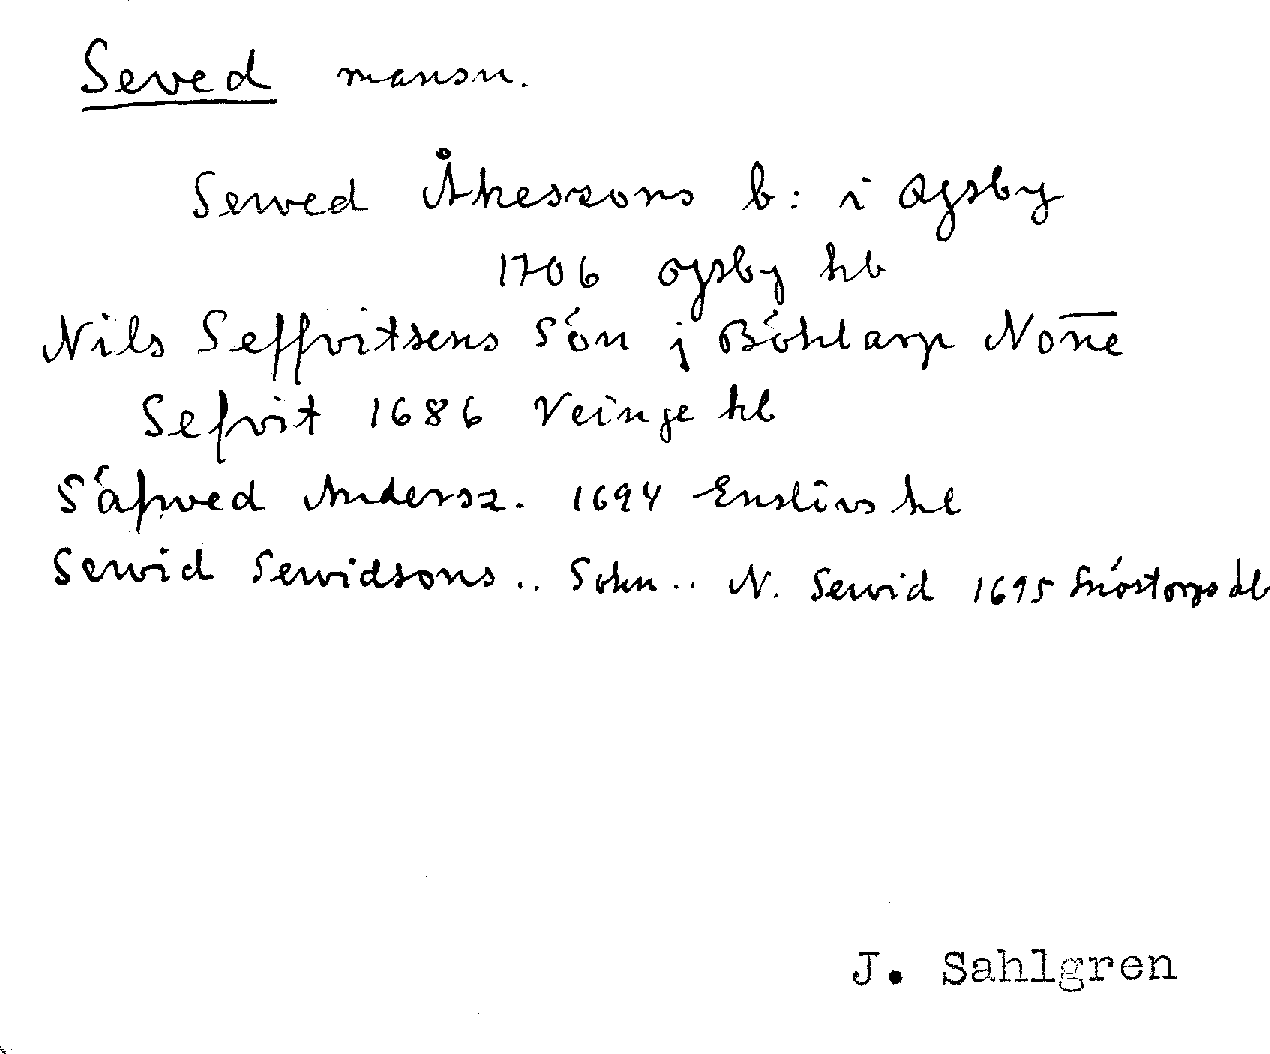 Seved mansn.
Sewed Åkessons b: i Øgsby
1706 Ogsby kb
Nils Seffvitsens Són j Bóklarp Nom̅e
Sefvit 1686 Veinge kb
Sáfwed Andersz. 1694 Enslövs kb
Sewid Sewidsons .. Sohn .. N. Sewid 1695 Snóstorps kb
J. Sahlgren